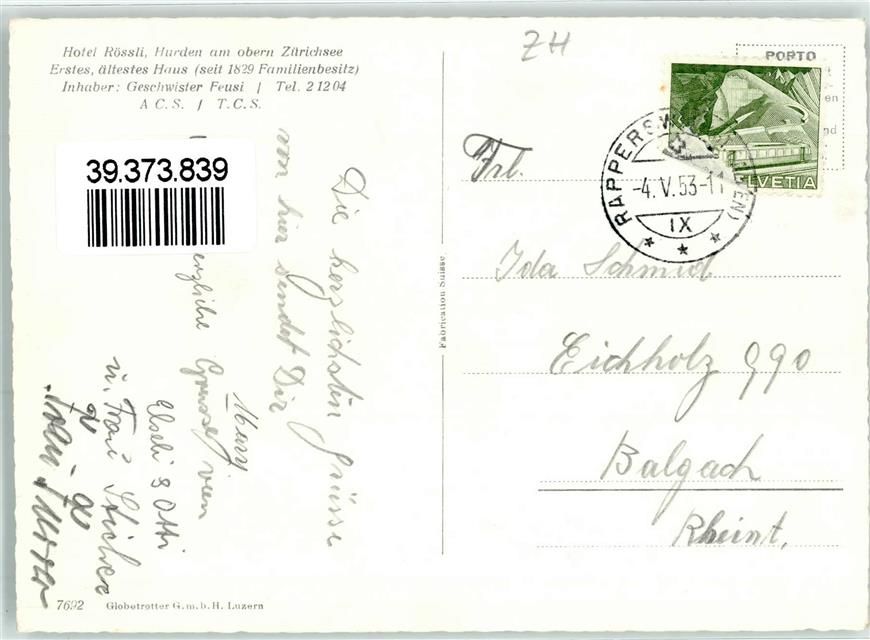 Hotel Rössli, Hurden am obern Zürichsee
Erstes, ältestes Haus (seit 1829 Familienbesitz)
Inhaber: Geschwister Feusi | Tel. 2 12 04
A C.S. / T.C.S.
39.373.839
Die herzlichsten Grüsse
von hier sendet Dir
Mary
Grüsse von
Elsbi & Otti
u. Frau
7692 Globetrotter G.m.b.H. Luzern
Fabrication Suisse
ZH
PORTO
en
nd
HELVETIA
RAPPERSWIL
-4.V.53-11
IX
Frl.
Ida Schmid
Eichholz 990
Balgach
Rheint.